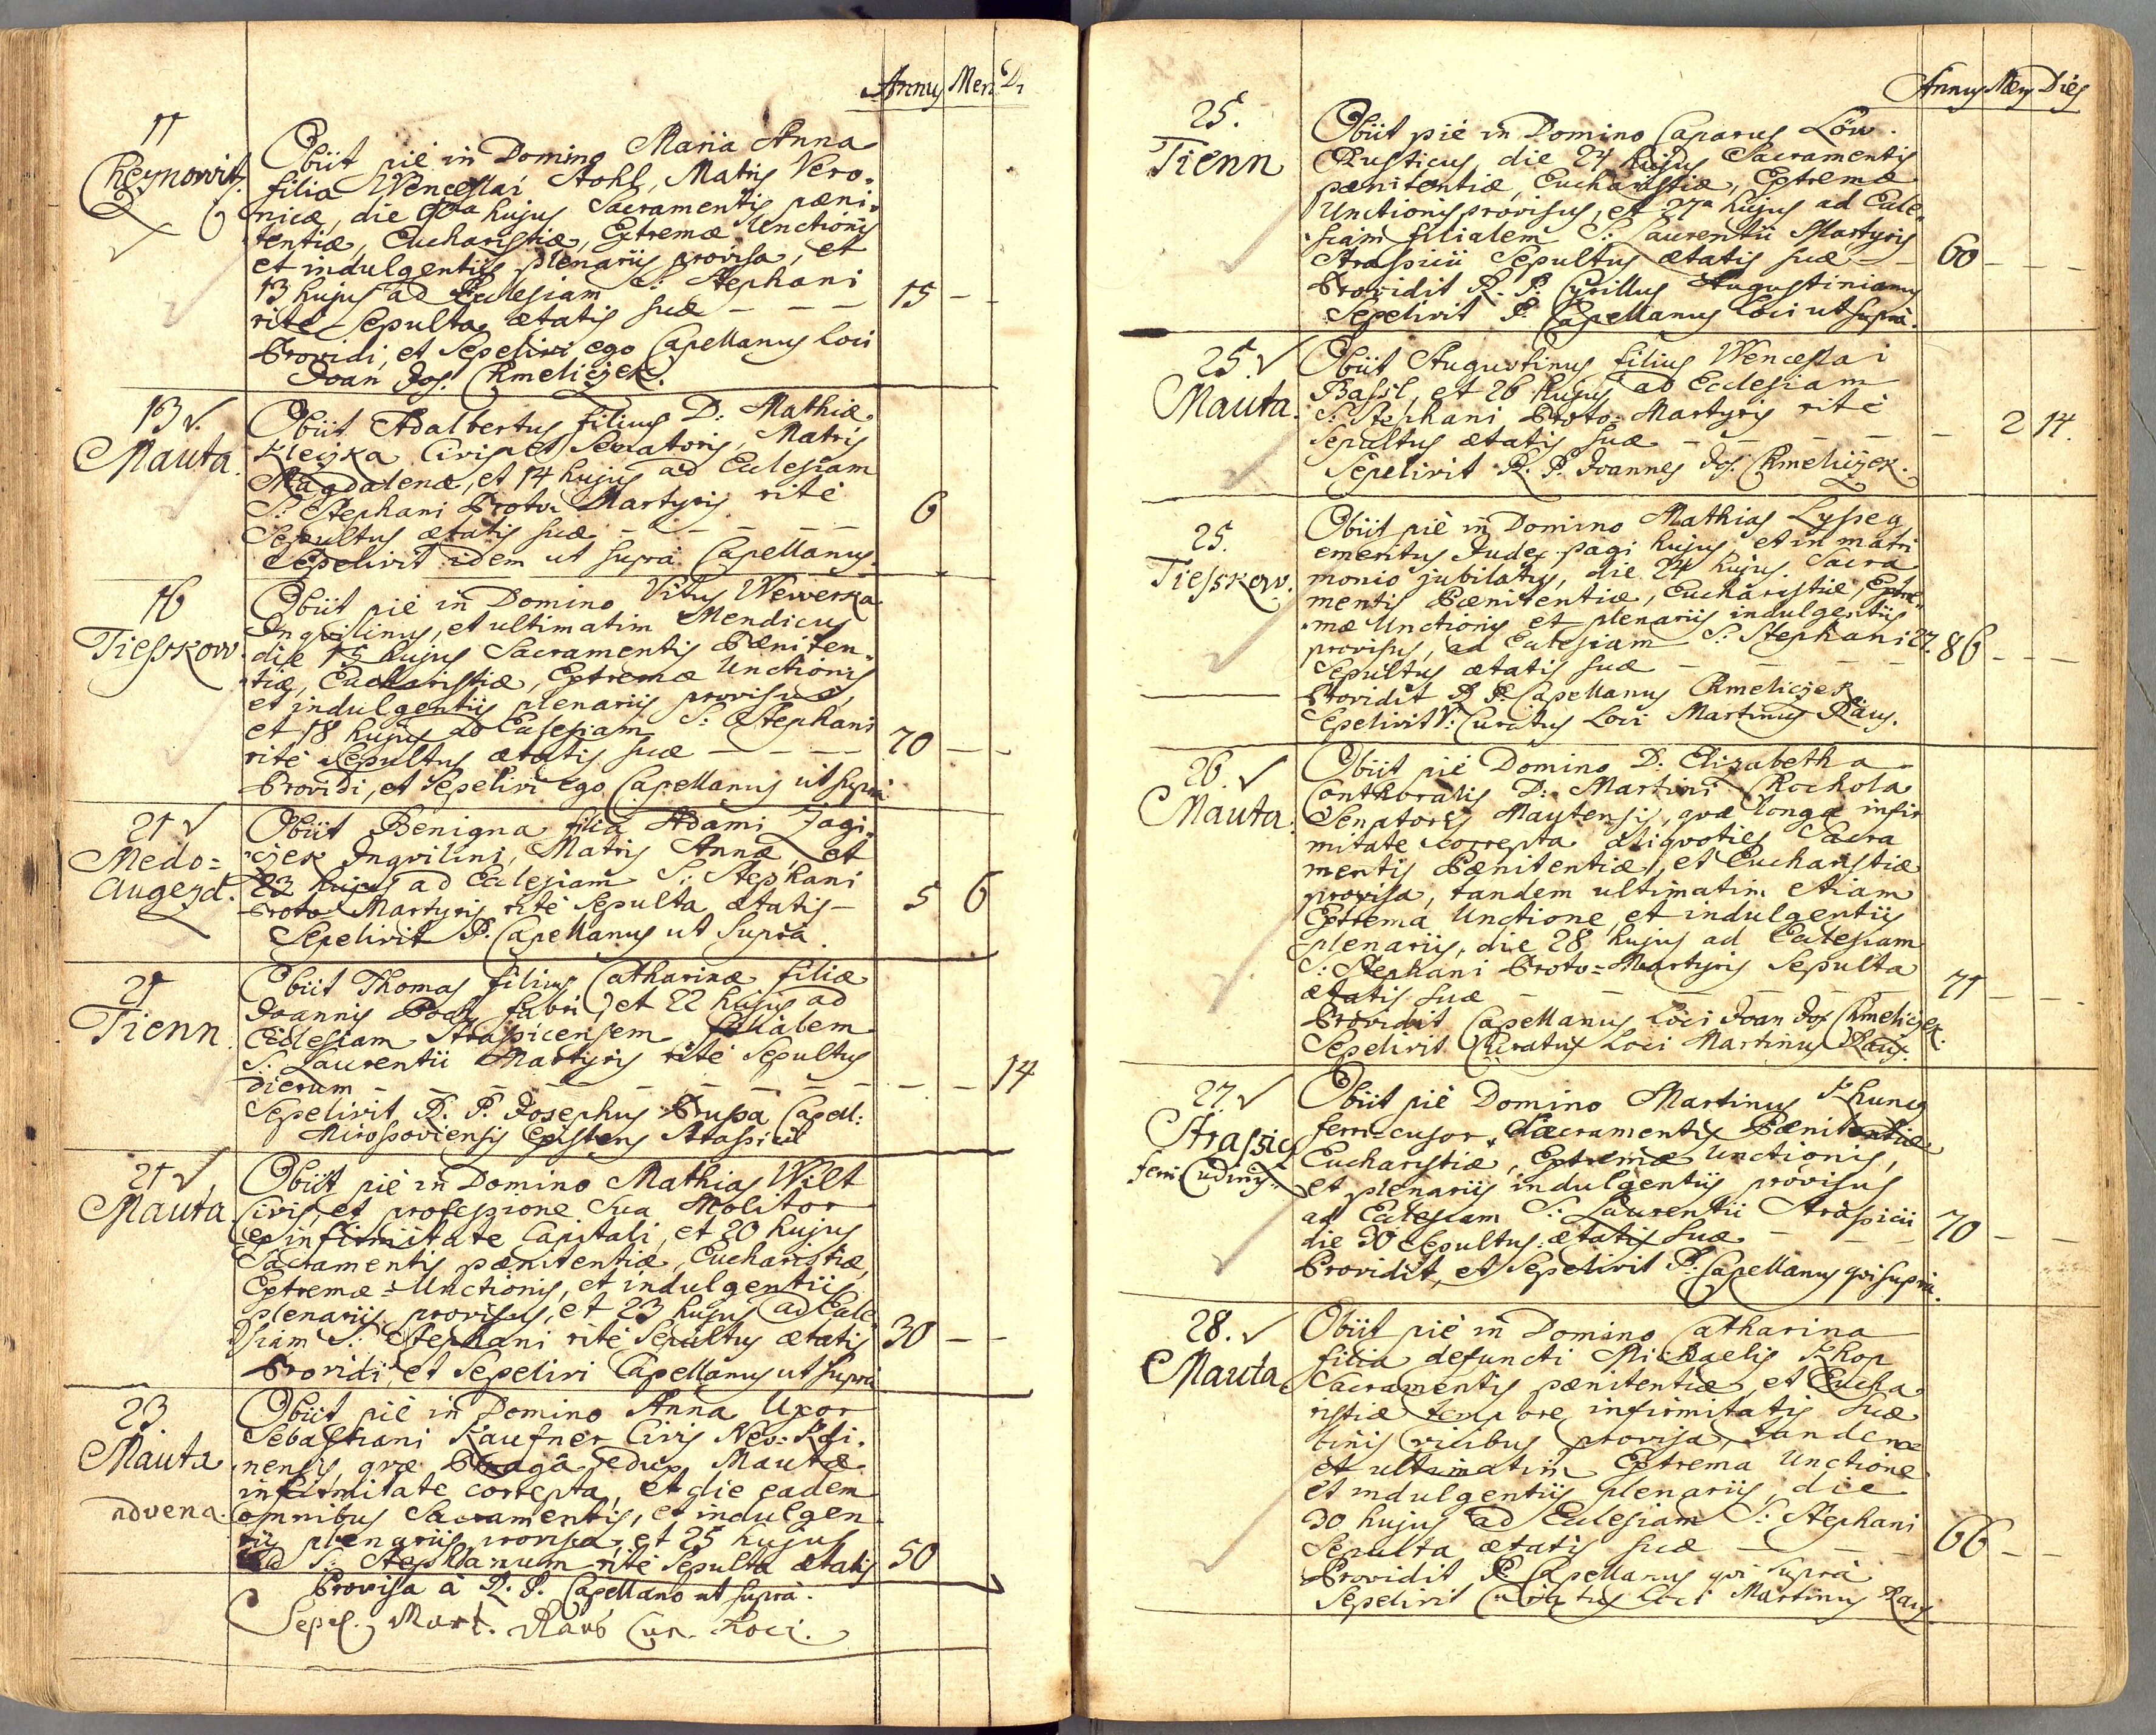 Annus Men D:
11
Cheynowit.
Obiit pie in Domino Maria Anna
filia Wenceslai Stohl, Matris Vero-
nicæ, die hujus Sacramentis pæni-
tentiæ, Eucharistiæ, Extremæ Unctionis
et indulgentiis plenariis provisa, et
13 hujus ad Eclesiam S: Stephani
rite Sepulta ætatis suæ - - - 15 - -
Providi, et Sepelivi ego Capellanus loci
Joan Jos. Chmeliczek.
13
Mauta.
Obiit Adalbertus filius D: Mathiæ
Kleiska Civis et Senatoris, Matris
Magdalenæ, et 14 hujus ad Eclesiam
S: Stephani Proto-Martyris rite 6
Sepultus ætatis suæ - - - - -
Sepelivit idem ut supra Capellanus.
16
Tiesskow
Obiit pie in Domino Vitus Wewerka
Inqvilinus, et ultimatim Mendicus
die 15 hujus Sacramentis Pæniten-
tiæ, Eucharistiæ, Extremæ Unctionis
et indulgentiis plenariis provisus,
et 18 hujus ad Eclesiam S: Stephani
rite Sepultus ætatis suæ - - - - 70 - -
Providi, et Sepelivi ego Capellanus ut supra
21
Medo=
augezd.
Obiit Benigna filia Adami Jagi-
czek Inqvilini, Matris Annæ, et
23 hujus ad Eclesiam S: Stephani
Proto Martyris rite Sepulta ætatis - 5 6
Sepelivit P. Capellanus ut Supra.
21
Tienn.
Obiit Thomas filius Catharinæ filiæ
Joannis Fabri, et 22 hujus ad
Eclesiam Straspicensem filialem
S: Laurentii Martyris rite Sepultus
dierum - - - - - - - - - - - 14
Sepelivit R. P. Josephus Capell:
Mirossoviensis Existens Strassicii
21
Mauta
Obiit pie in Domino Mathias Wilt
Civis, et professione sua Molitor
ex infirmitate Capitali, et 20 hujus
Sacramentis pænitentiæ, Eucharistiæ,
Extremæ=Unctionis, et indulgentiis
plenariis provisus, et 23 hujus ad Ecle-
siam S: Stephani rite Sepultus ætatis 30 - -
Providi, et Sepelivi Capellanus ut supra
23
Mauta
advena.
Obiit pie in Domino Anna Uxor
Sebastiani Kaufner Civis
nensis, qvæ Praga redux Mautæ
infirmitate correpta, et die eadem
omnibus Sacramentis, et indulgen-
tiis plenariis provisa, et 25 hujus
ad S: Stephanum rite Sepulta ætatis 50
Provisa à R. P. Capellano ut supra.
Sepel. Mart. Raus Cur. Loci.
Annus Mens Dies
25.
Tienn
Obiit pie in Domino Caparus Löw.
Rusticus, die 24 hujus Sacramentis
pænitentiæ, Eucharistiæ, Extremæ
Unctionis provisus, et 27a hujus ad Ecle-
siam filialem S: Laurentii Martyris
Straspicii Sepultus ætatis suæ - - 60 - - -
Providit R. P. Cyrillus Augustinianus
Sepelivit P. Capellanus Loci ut supra.
25.
Mauta.
Obiit Augustinus filius Wenceslai
Bassl, et 26 hujus ad Eclesiam
S: Stephani Proto=Martyris rite
Sepultus ætatis suæ - - - - - - 2 14.
Sepelivit R. P. Joannes Jos. Chmeliczek.
25.
Tiesskow.
Obiit pie in Domino Mathias Lysseg
emeritus Judex pagi hujus, et in matri
monio jubilatus, die 24 hujus Sacra
mentis Pænitentiæ, Eucharistiæ, Extre-
mæ Unctionis et plenariis indulgentiis
provisus, ad Eclesiam S: Stephani 27. 86 - - -
Sepultus ætatis suæ - - - -
Providit R. P. Capellanus Chmeliczek
Sepelivit V: Curatus Loci Martinus Räus.
26.
Mauta.
Obiit pie Domino D: Elizabetha
Conthoralis D: Martini Rochola
Senatoris Mautensis, qvæ longa infir
mitate correpta aliqvoties Sacra
mentis Pænitentiæ, et Eucharistiæ
provisa, tandem ultimatim etiam
Extrema Unctione, et indulgentiis
plenariis, die 28 hujus ad Eclesiam
S: Stephani Proto=Martyris Sepulta
ætatis suæ - - - - - - 71 - - -
Providit Capellanus Loci Joan Jos Chmeliczek.
Sepelivit Curatus Loci Martinus Raus.
27.
Strassic
ferri Cudinis.
Obiit pie Domino Martinus Khuneg
ferri-cusor, Sacramentis Pænitentiæ
Eucharistiæ, Extremæ Unctionis,
et plenariis indulgentiis provisus
ad Eclesiam S: Laurentii Straspicii
die 30 Sepultus: ætatis suæ - - - 70 - -
Providit, et Sepelivit P. Capellanus qvi supra.
28.
Mauta
Obiit pie in Domino Catharina
filia defuncti Michaelis Khop
Sacramentis pænitentiæ, et Eucha
ristiæ tempore infirmitatis suæ
binis vicibus provisa, tandem
et ultimatim Extrema Unctione
et indulgentiis plenariis, die
30 hujus ad Eclesiam S: Stephani
Sepulta ætatis suæ - - - 66 - -
Providit P. Capellanus qvi supra
Sepelivit Curatus Loci Martinus Raus